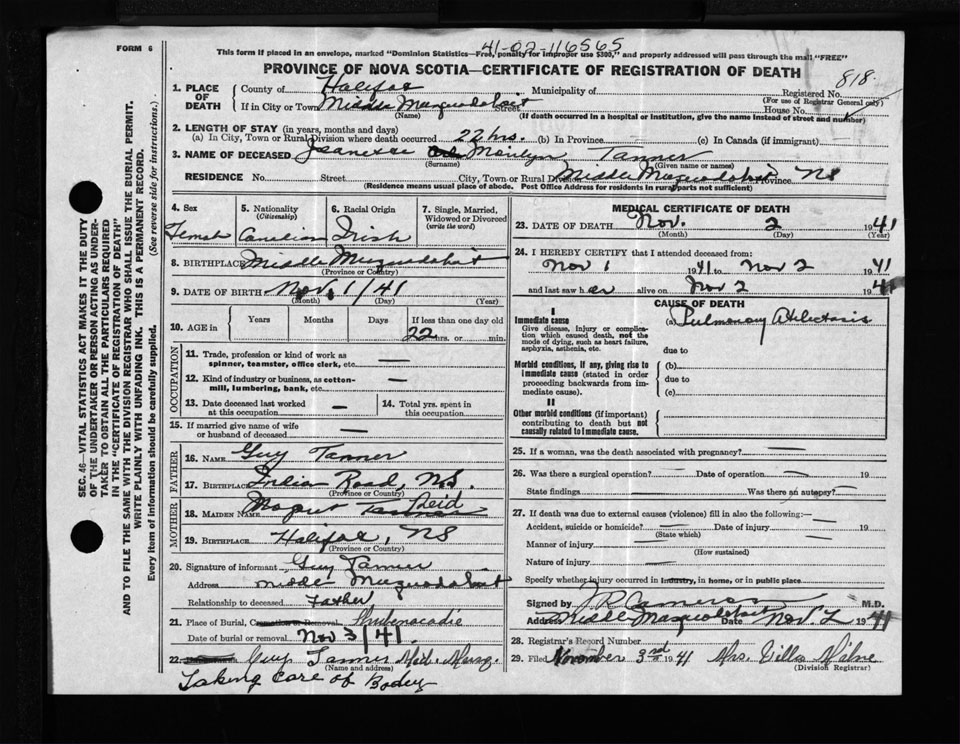 FORM 6
This form if placed in an envelope, marked "Dominion Statistics—Free, penalty for improper use $300," and properly addressed will pass through the mail "FREE"
41-02-116565
PROVINCE OF NOVA SCOTIA—CERTIFICATE OF REGISTRATION OF DEATH
818
1. PLACE OF DEATH
County of Halifax Municipality of Registered No.
(For use of Registrar General only)
If in City or Town Middle Musquodoboit Street House No.
(Name) (If death occurred in a hospital or institution, give the name instead of street and number)
2. LENGTH OF STAY (in years, months and days)
(a) In City, Town or Rural Division where death occurred 22 hrs. (b) In Province — (c) In Canada (if immigrant)
3. NAME OF DECEASED Marilyn Tanner
(Surname) (Given name or names)
RESIDENCE No. Street City, Town or Rural Division Middle Musquodoboit Province NS
(Residence means usual place of abode. Post Office Address for residents in rural parts not sufficient)
4. Sex
Female
5. Nationality (Citizenship)
Canadian
6. Racial Origin
Irish
7. Single, Married, Widowed or Divorced (write the word)
8. BIRTHPLACE Middle Musquodoboit
(Province or Country)
9. DATE OF BIRTH Nov. 1/41
(Month) (Day) (Year)
10. AGE in Years Months Days If less than one day old
22 hrs. or min.
OCCUPATION
11. Trade, profession or kind of work as spinner, teamster, office clerk, etc. —
12. Kind of industry or business, as cotton-mill, lumbering, bank, etc. —
13. Date deceased last worked at this occupation —
14. Total yrs. spent in this occupation.
15. If married give name of wife or husband of deceased —
FATHER
16. NAME Guy Tanner
17. BIRTHPLACE Indian Road, N.S.
(Province or Country)
MOTHER
18. MAIDEN NAME Tanner Reid
19. BIRTHPLACE Halifax, NS
(Province or Country)
20. Signature of informant Guy Tanner
Address Middle Musquodoboit
Relationship to deceased Father
21. Place of Burial, Cremation or Removal Shubenacadie
Date of burial or removal Nov 3/41.
22. Guy Tanner Mid. Musq.
(Name and address)
Taking care of Body
MEDICAL CERTIFICATE OF DEATH
23. DATE OF DEATH Nov. 2 1941
(Month) (Day) (Year)
24. I HEREBY CERTIFY that I attended deceased from:
Nov 1 1941 to Nov 2 1941
and last saw her alive on Nov 2 1941
CAUSE OF DEATH
I
Immediate cause
Give disease, injury or complication which caused death, not the mode of dying, such as heart failure, asphyxia, asthenia, etc.
(a) Pulmonary Atelectasis
due to
Morbid conditions, if any, giving rise to immediate cause (stated in order proceeding backwards from immediate cause).
(b)
due to
(c)
II
Other morbid conditions (if important) contributing to death but not causally related to immediate cause.
25. If a woman, was the death associated with pregnancy? —
26. Was there a surgical operation? — Date of operation —
State findings — Was there an autopsy? —
27. If death was due to external causes (violence) fill in also the following:—
Accident, suicide or homicide? — Date of injury 19
(State which)
Manner of injury —
(How sustained)
Nature of injury —
Specify whether injury occurred in industry, in home, or in public place
Signed by J R Cameron M.D.
Address Middle Musquodoboit Date Nov. 2 1941
28. Registrar's Record Number
29. Filed November 3rd 1941 Mrs. Willis Milne
(Division Registrar)
SEC. 46—VITAL STATISTICS ACT MAKES IT THE DUTY OF THE UNDERTAKER OR PERSON ACTING AS UNDERTAKER TO OBTAIN ALL THE PARTICULARS REQUIRED IN THE "CERTIFICATE OF REGISTRATION OF DEATH" AND TO FILE THE SAME WITH THE DIVISION REGISTRAR WHO SHALL ISSUE THE BURIAL PERMIT.
WRITE PLAINLY WITH UNFADING INK. THIS IS A PERMANENT RECORD.
Every item of information should be carefully supplied. (See reverse side for instructions.)